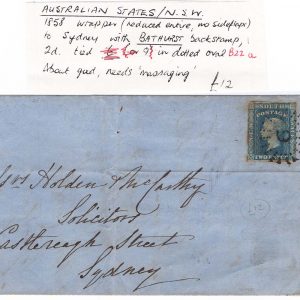 AUSTRALIAN STATES/N.S.W.
1858 wrapper (reduced entire, no sideflaps)
to Sydney with BATHURST backstamp,
2d. tied in dotted oval B22a
About good, needs massaging
£12
POSTAGE
TWO PENCE
Holden & McCarthy
Solicitors
Castlereagh Street
Sydney
£12